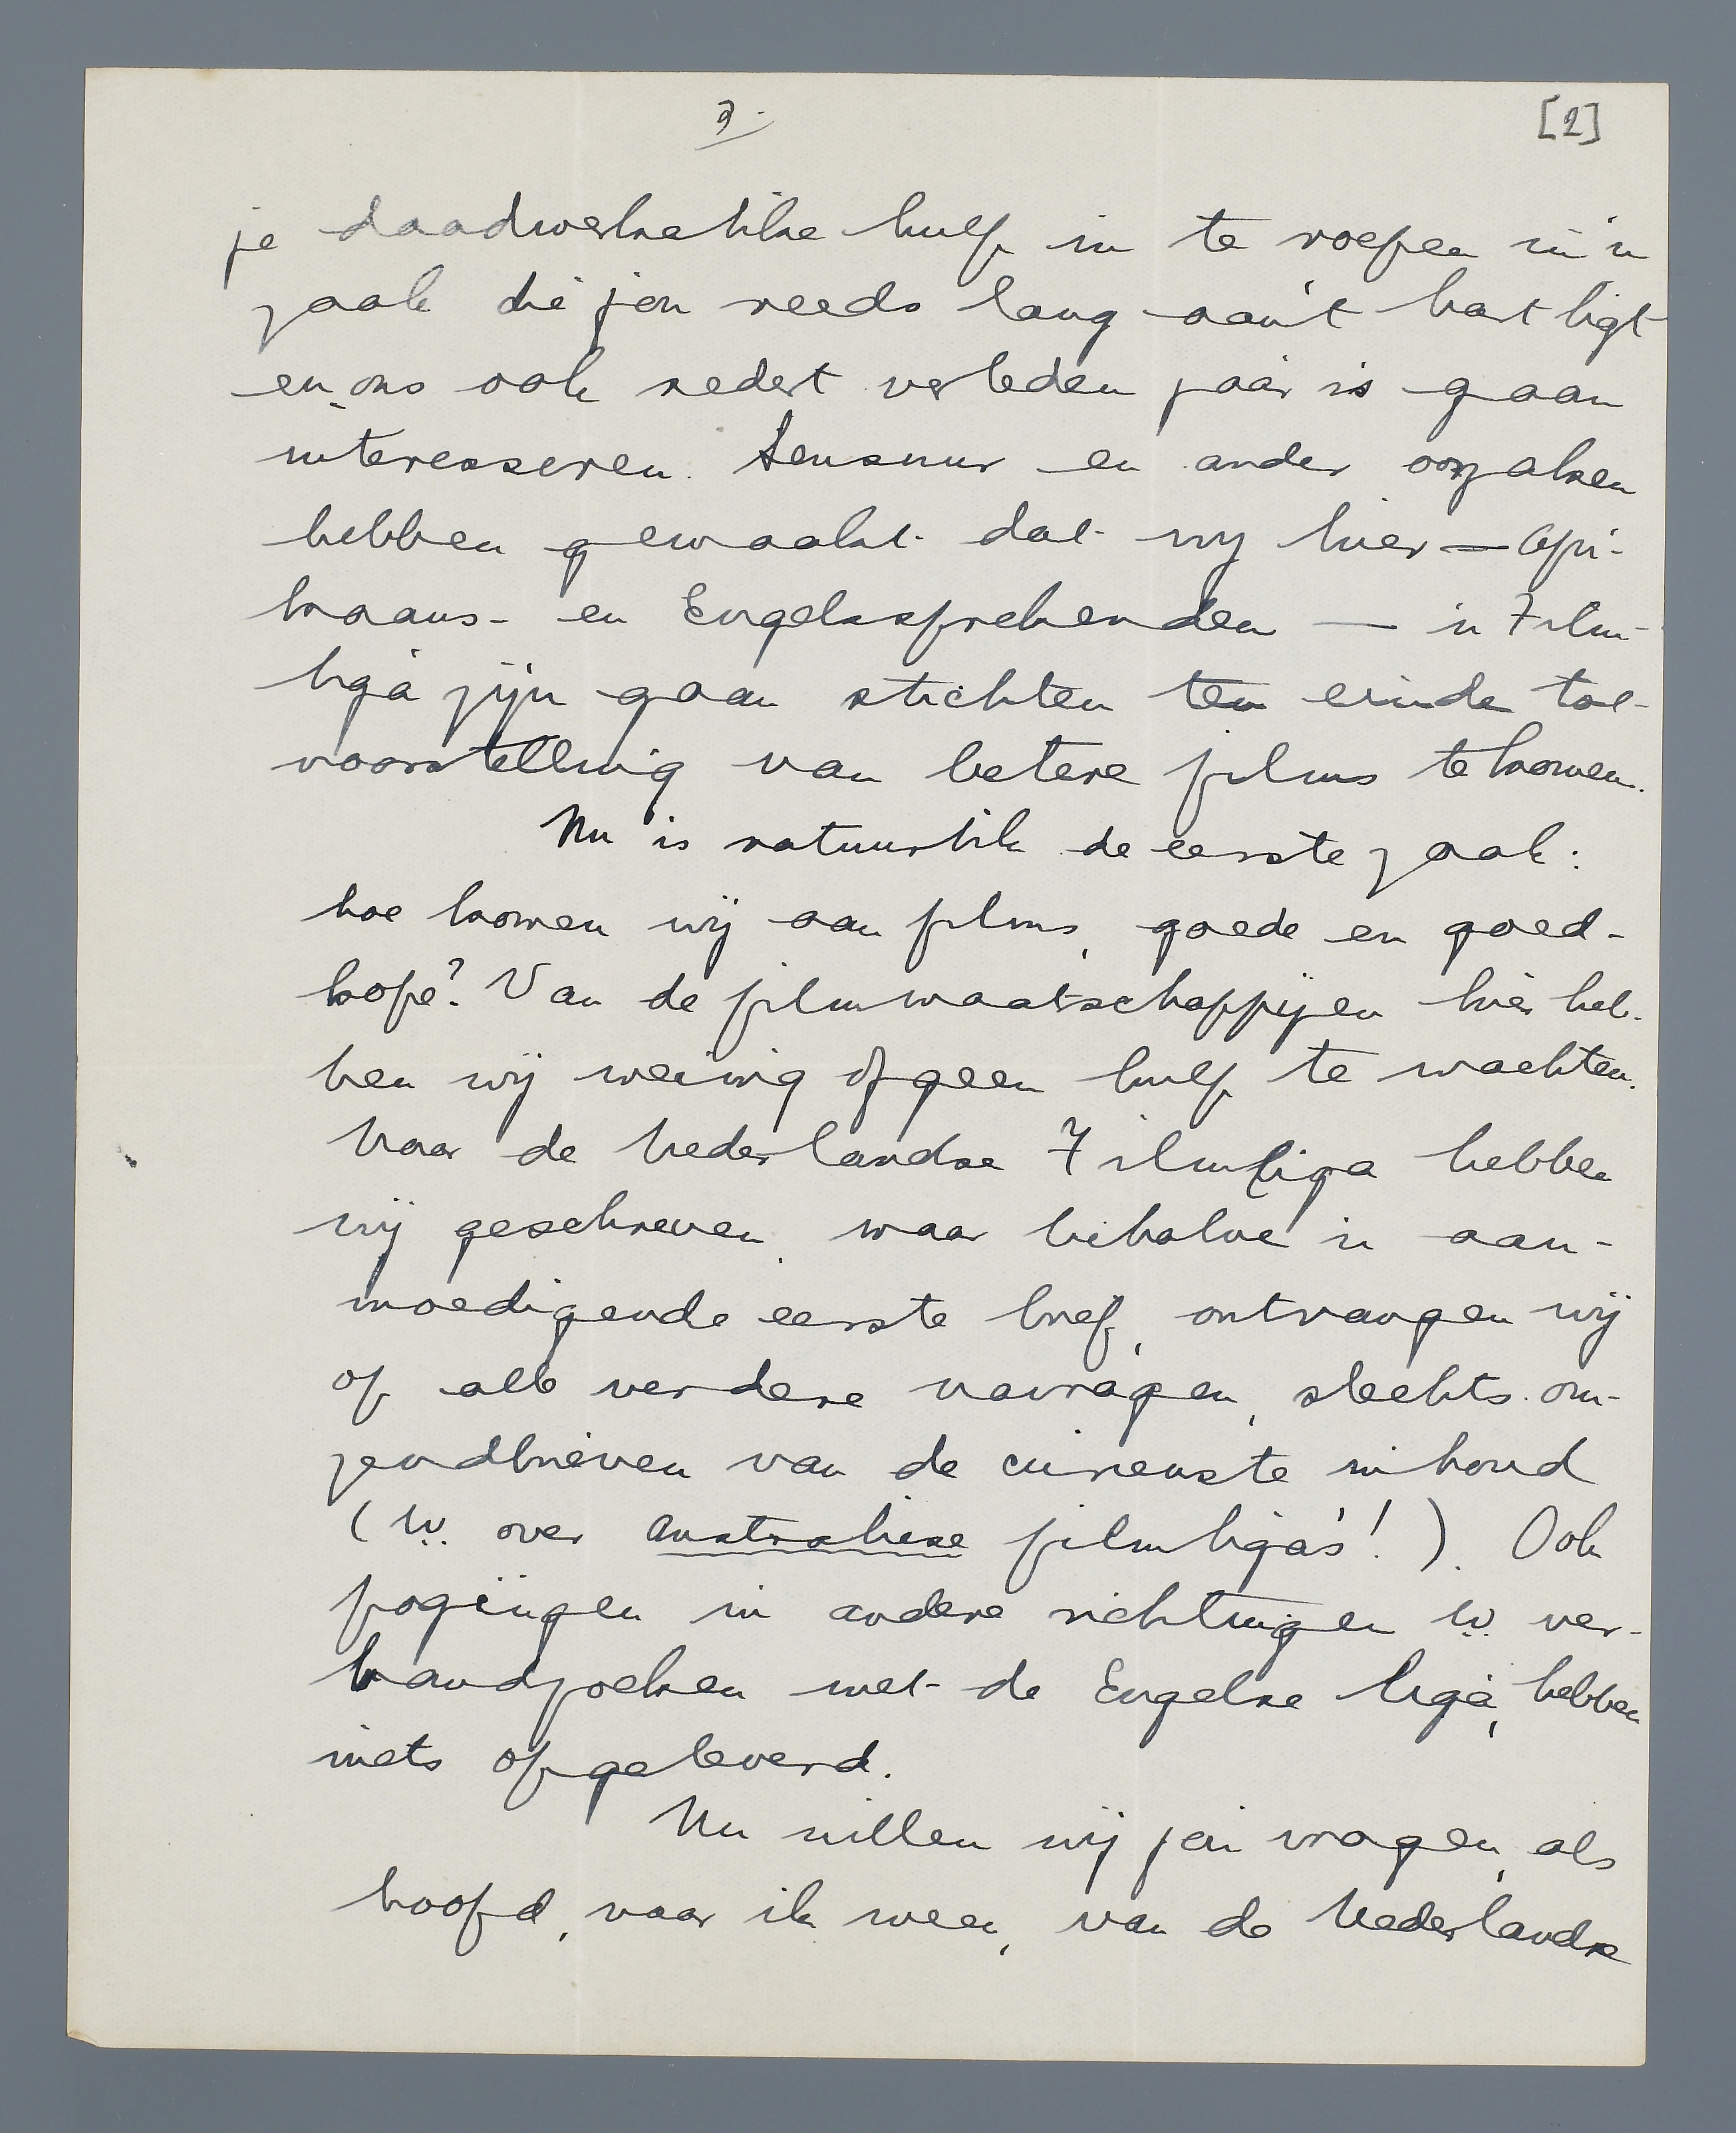 2.
[2]
je daadwerkelike hulp in te roepen in 'n
zaak die jou reeds lang aan 't hart ligt
en ons ook sedert verleden jaar is gaan
interesseren. Sensuur en ander oorzaken
hebben gemaakt dat wij hier — Afri-
kaans- en Engelssprekenden — 'n Film-
liga zijn gaan stichten ten einde tot
voorstelling van betere films te komen.
Nu is natuurlik de eerste zaak:
hoe komen wij aan films, goede en goed-
kope? Van de filmmaatschappijen hier heb-
ben wij weinig of geen hulp te wachten.
Naar de Nederlandse Filmliga hebben
wij geschreven, maar behalve 'n aan-
moedigende eerste brief, ontvangen wij
op alle verdere navragen, slechts om-
zendbrieven van de curieuste inhoud
(b.v. over Australiese filmliga's!). Ook
pogingen in andere richtingen b.v. ver-
bandzoeken met de Engelse liga, hebben
niets opgeleverd.
Nu willen wij jou vragen, als
hoofd, naar ik meen, van de Nederlandse